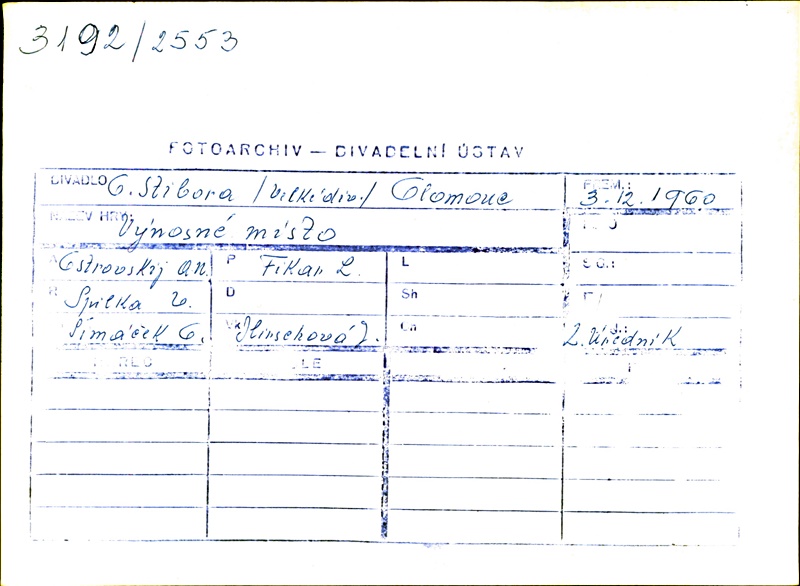 3192/2553
FOTOARCHIV — DIVADELNÍ ÚSTAV
DIVADLO O. Stibora /velké div./ Olomouc PREM.: 3.12.1960
NÁZEV HRY: Výnosné místo
A Ostrovskij A.N. P Fikar L. L
R Spilka V. D Sh
Šimáček O. VK Hirschová J. Ch Z. Úředník